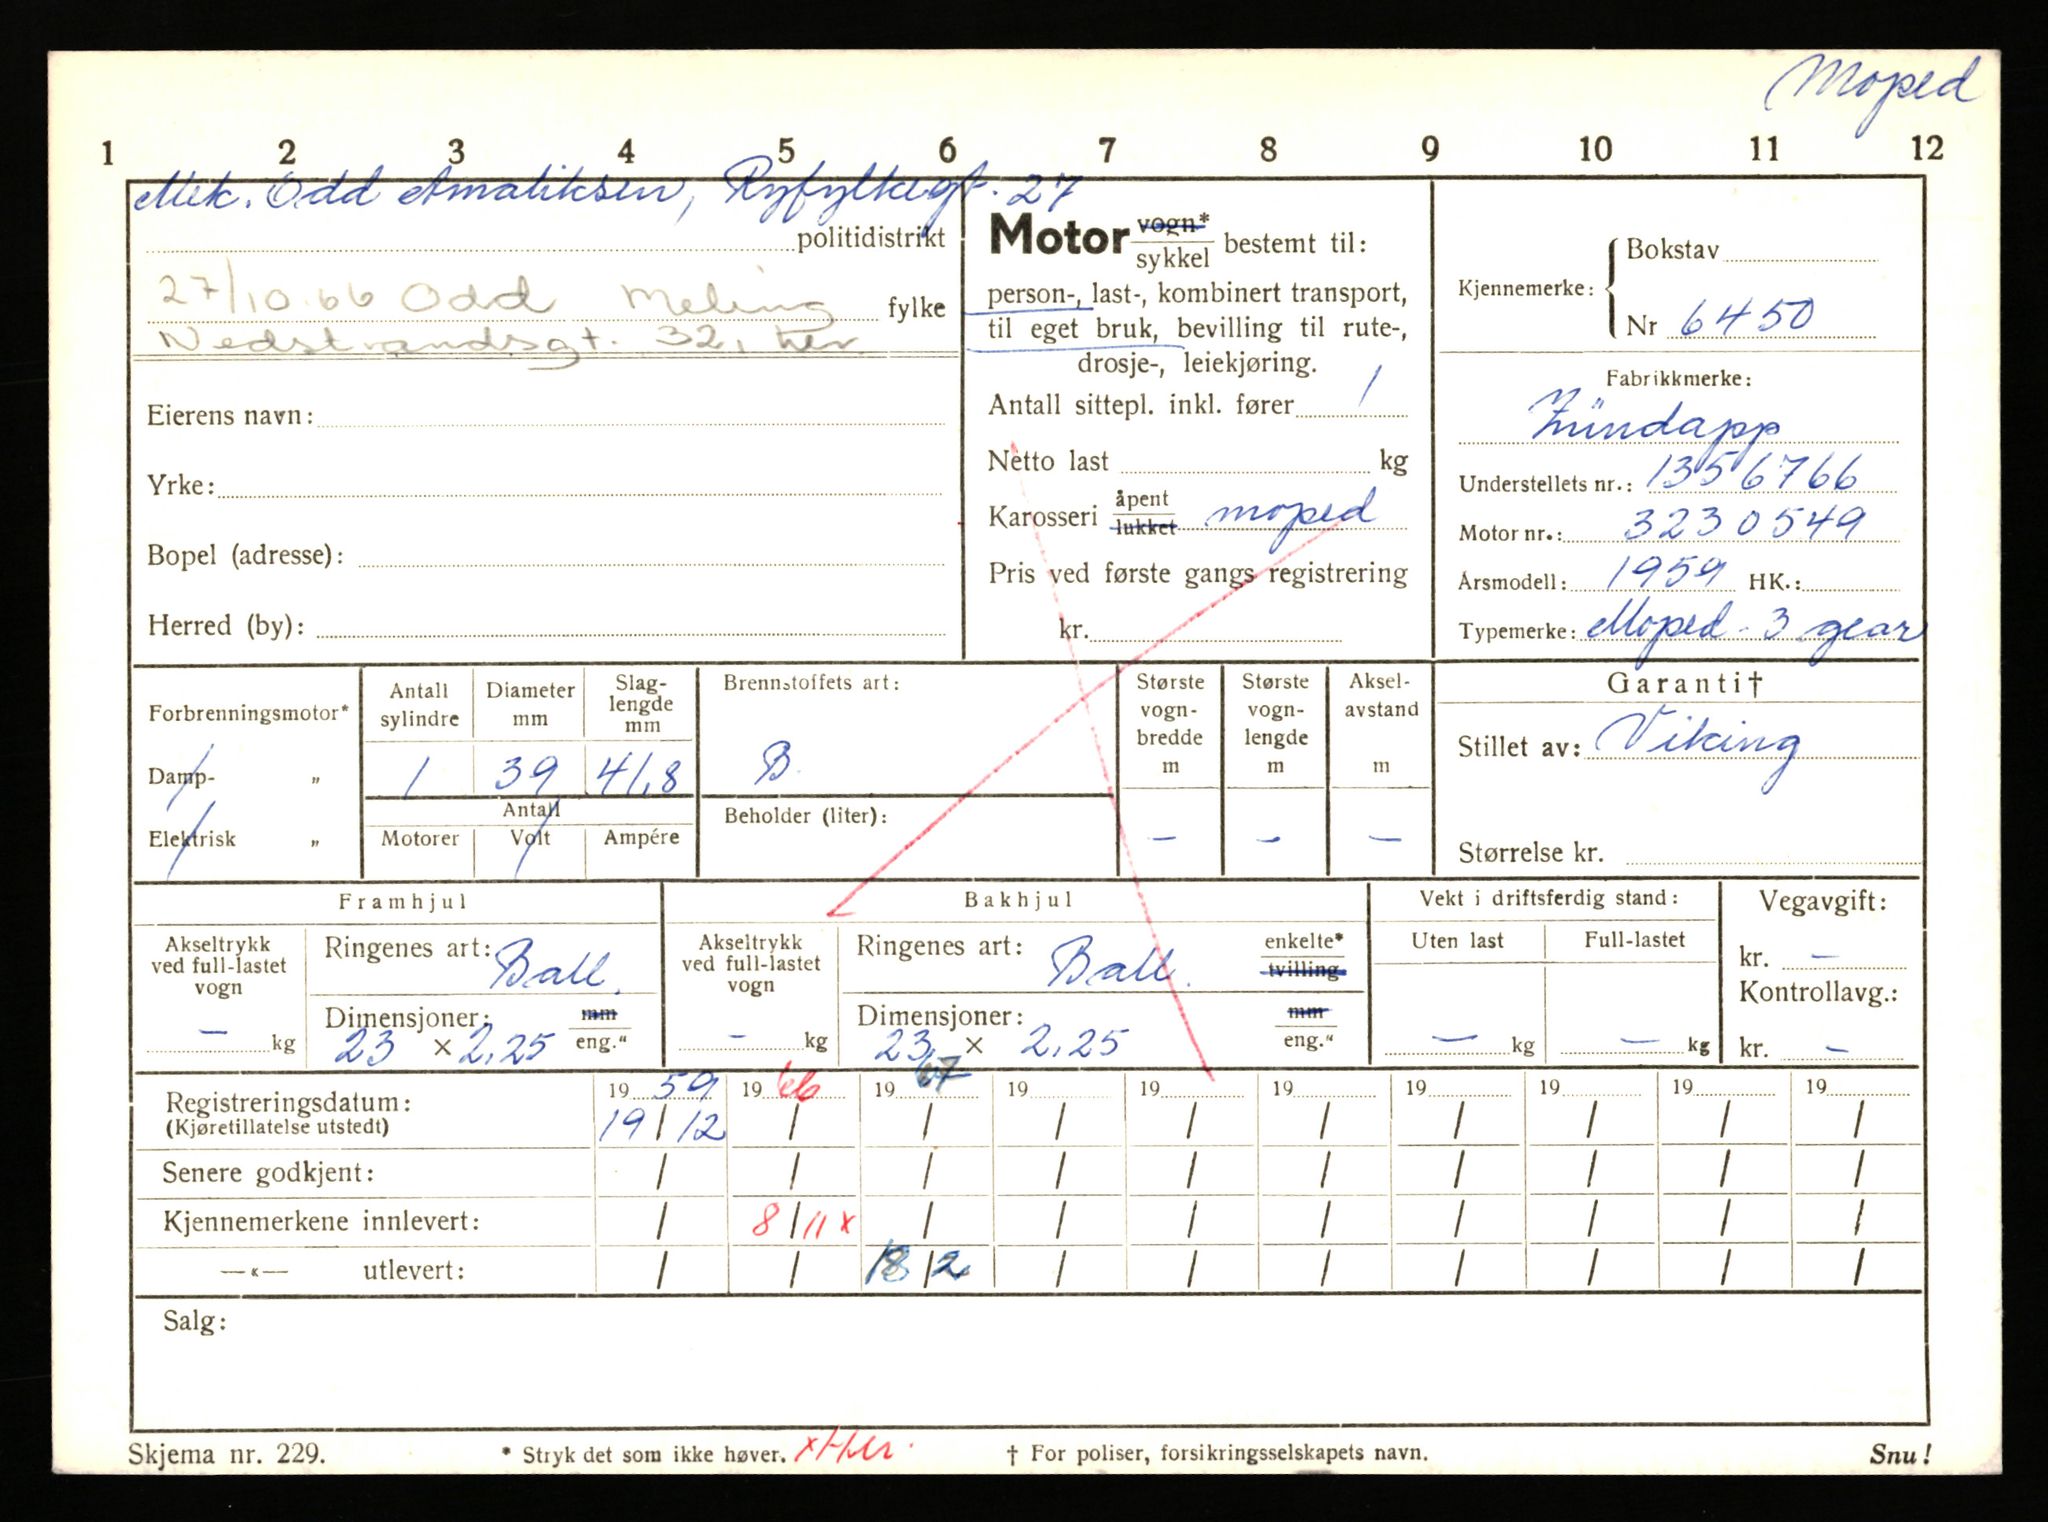 Moped
1 2 3 4 5 6 7 8 9 10 11 12
Mek. Odd Amaliksen, Ryfylkegt. 27
politidistrikt
27/10.66 Odd Meling fylke
Nedstrandsgt. 32, her
Eierens navn:
Yrke:
Bopel (adresse):
Herred (by):
Motor vogn* sykkel bestemt til:
person-, last-, kombinert transport,
til eget bruk, bevilling til rute-,
drosje-, leiekjøring.
Antall sittepl. inkl. fører 1
Netto last kg
Karosseri åpent lukket moped
Pris ved første gangs registrering
kr.
Kjennemerke: Bokstav
Nr 6450
Fabrikkmerke:
Zündapp
Understellets nr.: 1356766
Motor nr.: 3230549
Årsmodell: 1959 HK.:
Typemerke: Moped - 3 gear
Forbrenningsmotor*
Damp- „
Elektrisk „
Antall sylindre
Diameter mm
Slag-lengde mm
1 39 41,8
Antall
Motorer Volt Ampére
Brennstoffets art:
B.
Beholder (liter):
Største vogn-bredde m
Største vogn-lengde m
Aksel-avstand m
– – –
Garanti†
Stillet av: Viking
Størrelse kr.
Framhjul
Akseltrykk ved full-lastet vogn
– kg
Ringenes art: Ball.
Dimensjoner: mm
23 × 2,25 eng."
Bakhjul
Akseltrykk ved full-lastet vogn
- kg
Ringenes art: Ball. enkelte* tvilling
Dimensjoner: mm
23 × 2,25 eng."
Vekt i driftsferdig stand:
Uten last Full-lastet
– kg – kg
Vegavgift:
kr. –
Kontrollavg.:
kr. –
19 59 19 66 19 67 19 19 19 19 19 19 19
Registreringsdatum: 19/12 / / / / / / / / /
(Kjøretillatelse utstedt)
Senere godkjent: / / / / / / / / / /
Kjennemerkene innlevert: / 8/11 x / / / / / / / /
—«— utlevert: / / 18/2 / / / / / / /
Salg:
Skjema nr. 229. * Stryk det som ikke høver. x Her. † For poliser, forsikringsselskapets navn. Snu!